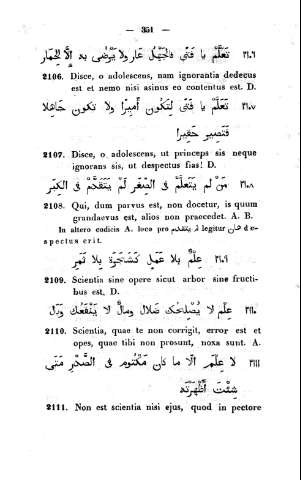 — 351 —
٢١٠٦ تَعَلَّمْ يا فَتَى فالجَهْلُ عارٌ ولا يَرْضَى به إلَّا الحِمار
2106. Disce, o adolescens, nam ignorantia dedecus
est et nemo nisi asinus eo contentus est. D.
٢١٠٧ تَعَلَّمْ يا فَتَى لِتَكُون أَمِيرًا ولا تكون جاهلا
فتصير حقيرا
2107. Disce, o adolescens, ut princeps sis neque
ignorans sis, ut despectus fias! D.
٢١٠٨ مَنْ لم يَتَعَلَّمْ فى الصِّغَر لَمْ يَتَقَدَّمْ فى الكِبَر
2108. Qui, dum parvus est, non docetur, is quum
grandaevus est, alios non praecedet. A. B.
In altero codicis A. loco pro لم يتقدم legitur هان de-
spectus erit.
٢١٠٩ عِلْمٌ بِلا عَمَلٍ كَشَجَرَةٍ بِلا ثَمَرٍ
2109. Scientia sine opere sicut arbor sine fructi-
bus est. D.
٢١١٠ عِلْمٌ لا يُصْلِحُكَ ضَلال ومالٌ لا يَنْفَعُكَ وَبَال
2110. Scientia, quae te non corrigit, error est et
opes, quae tibi non prosunt, noxa sunt. A.
٢١١١ لا عِلْمَ الّا ما كان مَكْتُوم فى الصَّدْرِ مَتَى
شِئْتَ أَظْهَرْتَه
2111. Non est scientia nisi ejus, quod in pectore